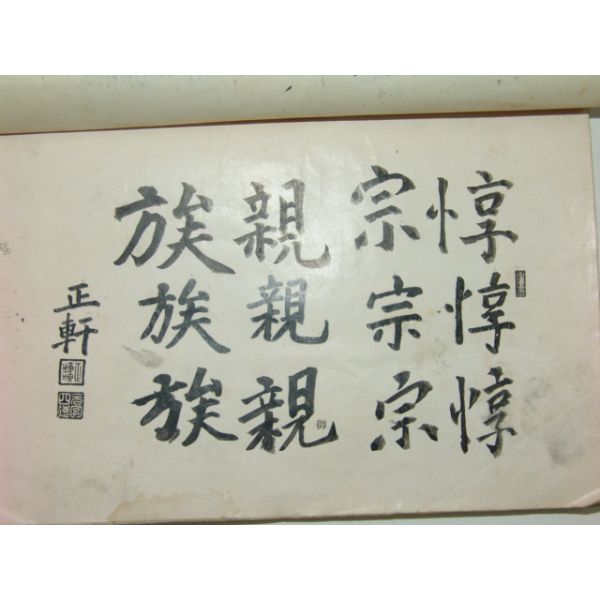 惇宗親族
惇宗親族
惇宗親族
正軒